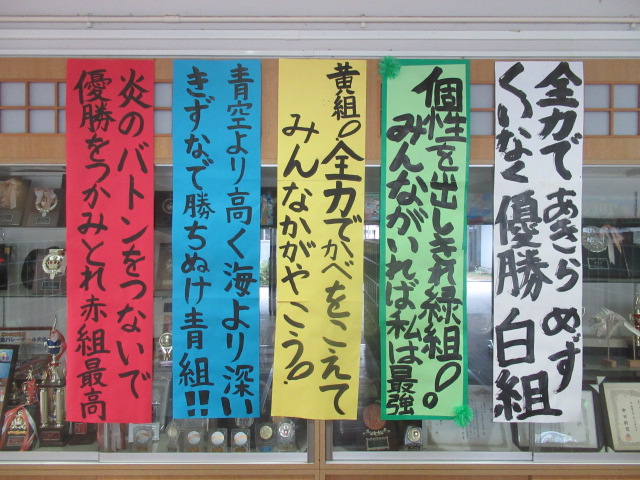 炎のバトンをつないで
優勝をつかみとれ赤組最高
青空より高く海より深い
きずなで勝ちぬけ青組!!
黄組。全力でかべをこえて
みんなかがやこう。
個性を出しきれ緑組。
みんながいれば私は最強
全力で あきら めず
くいなく 優勝 白組